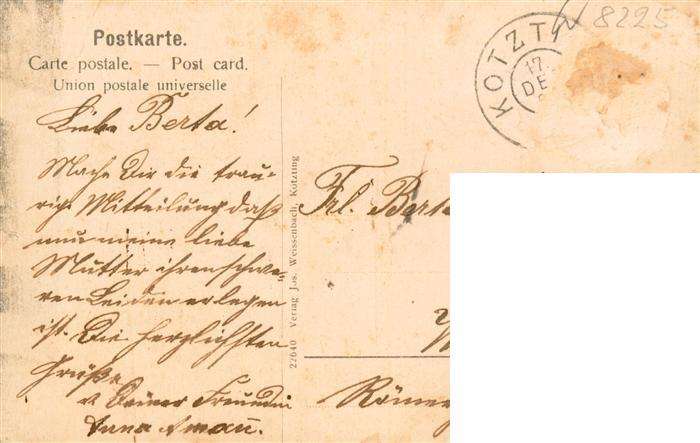 Postkarte.
Carte postale. — Post card.
Union postale universelle
Liebe Berta!
Mache Dir die trau-
rige Mitteilung daß
nun meine liebe
Mutter ihren schwe-
ren Leiden erlegen
ist. Die herzlichsten
Grüße
v. Deiner Freundin
Anna Aman̄.
22640 Verlag Jos. Weissenbach, Kötzting
KÖTZT
17.
DE
8225
Frl. Berta